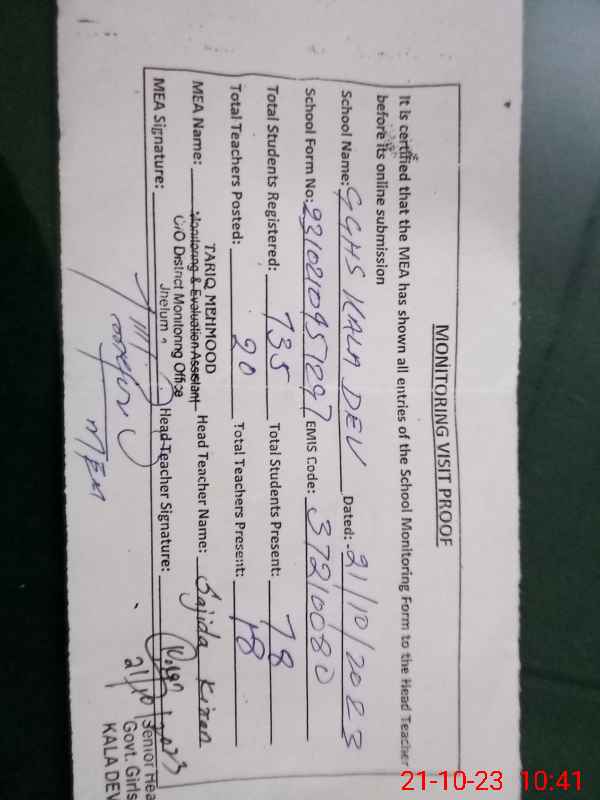 MONITORING VISIT PROOF
It is certified that the MEA has shown all entries of the School Monitoring Form to the Head Teacher
before its online submission
School Name: GGHS KALA DEV Dated: 21/10/2023
School Form No: 2310210951297 EMIS Code: 37210080
Total Students Registered: 735 Total Students Present: 78
Total Teachers Posted: 20 Total Teachers Present: 18
MEA Name: TARIQ MEHMOOD Head Teacher Name: Sajida Kiran
Monitoring & Evaluation Assistant
O/O District Monitoring Office
Jhelum
MEA Signature: Head Teacher Signature:
21/10
Senior Hea
Govt. Girls
KALA DEV
21-10-23 10:41